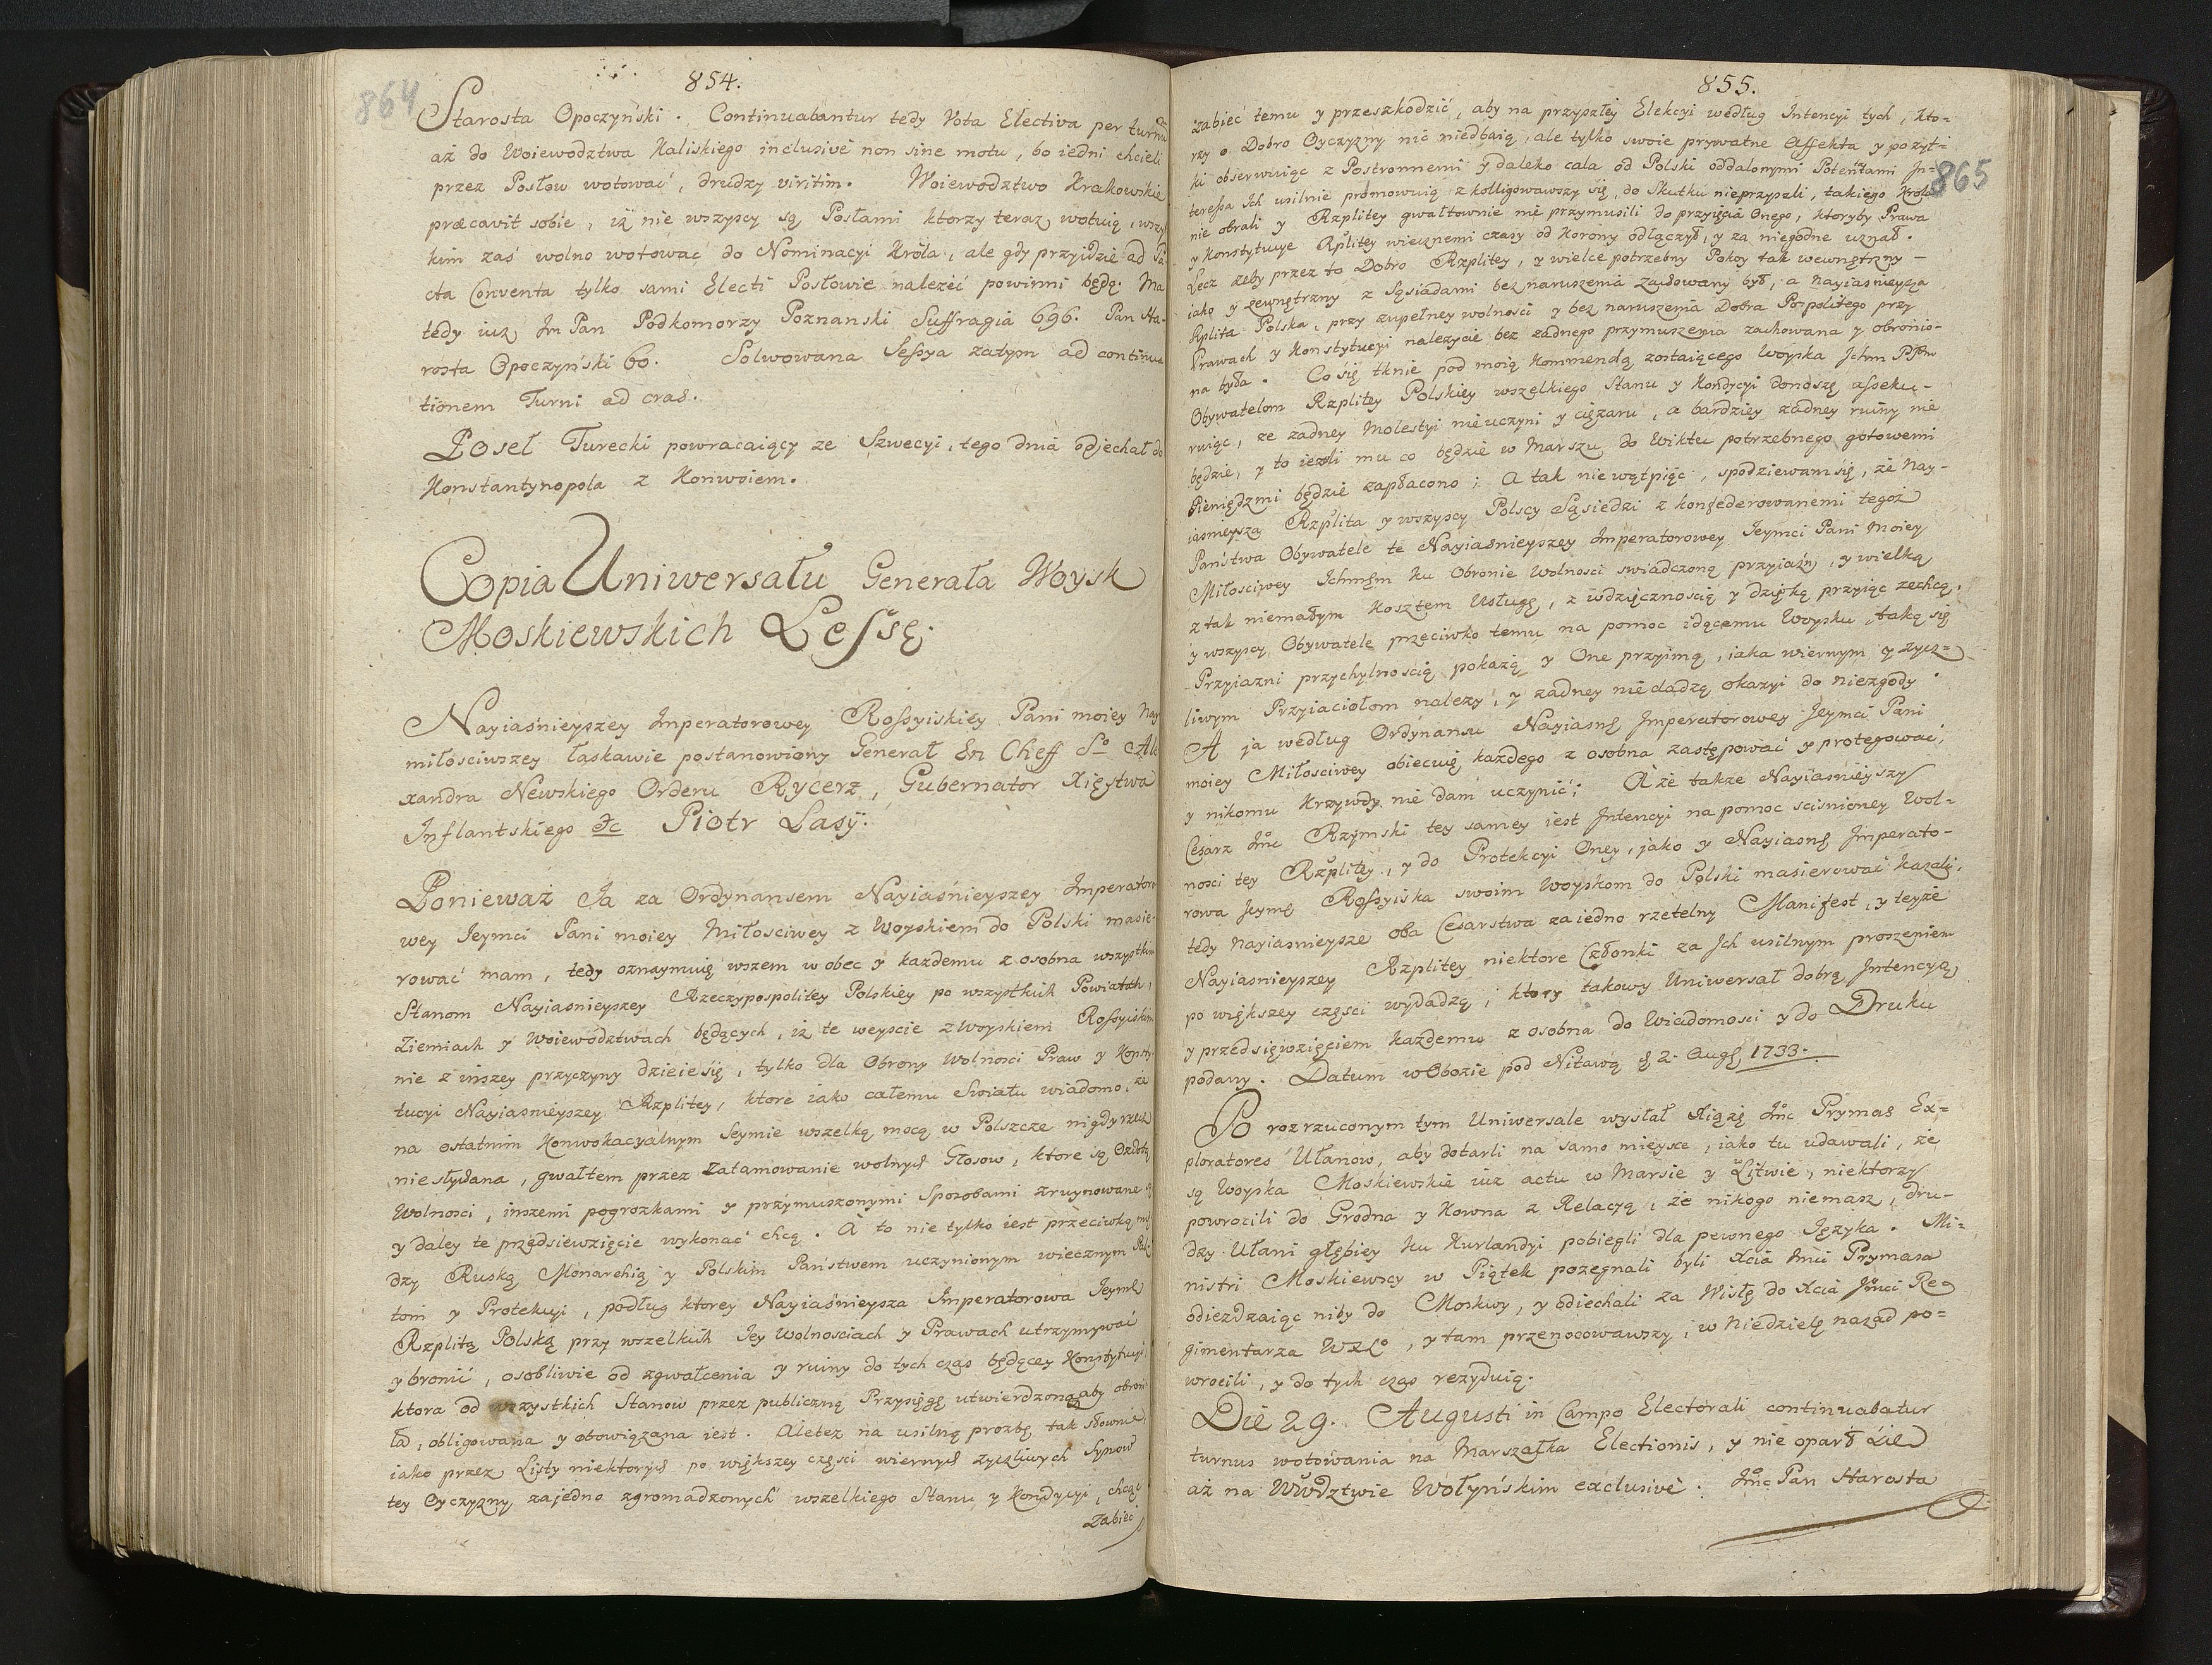 864
854.
Starosta Opoczyński. Continuabantur tedy Vota Electiva per turnū
aż do Woiewodztwa Kaliskiego inclusive non sine motu, bo iedni chcieli
przez Posłow wotować, drudzy viritim. Woiewodztwo Krakowskie
præcavit sobie, iż nie wszyscy są Posłami ktorzy teraz wotuią, wszy
kim zaś wolno wotować do Nominacyi Króla, ale gdy przyidzie ad Pa
cta Conventa tylko sami Electi Posłowie należeć powinni będą. Ma
tedy iuz Jm Pan Podkomorzy Poznanski Suffragia 696. Pan Sta-
rosta Opoczyński 60. Solwowana Sessya zatym ad continua
tionem Turni ad cras.
Poseł Turecki powracaiący ze Szwecyi, tego dnia odjechał do
Konstantynopola z Konwoiem.
Copia Uniwersału Generała Woysk
Moskiewskich Lessę.
Nayiaśnieyszey Imperatorowey Rossyiskiey Pani moiey Nay
miłościwszey łaskawie postanowiony Generał En Cheff So Ale
xandra Newskiego Orderu Rycerz, Gubernator Xięstwa
Inflantskiego &c Piotr Lasy.
Ponieważ Ja za Ordynansem Nayiaśnieyszey Imperatoro
wey Jeymci Pani moiey Miłosciwey z Woyskiem do Polski masie-
rować mam, tedy oznaymuię wszem wobec y kazdemu z osobna wszystkim
Stanom Nayiasnieyszey Rzeczypospolitey Polskiey po wszystkich Powiatach,
Ziemiach y Woiewodztwach będących, iż te weyscie z Woyskiem Rossyiskim
nie z inszey przyczyny dzieie się, tylko dla Obrony Wolnosci Praw y Konsty
tucyi Nayiasnieyszey Rzplitey, ktore iako całemu Swiatu wiadomo, że
na ostatnim Konwokacyalnym Seymie wszelką mocą w Polszcze nigdy rzecz
niesłydana, gwałtem przez zatamowanie wolnych Głosow, ktore są Ozdobą
Wolnosci, inszemi pogrozkami y przymuszonymi Sposobami zruynowane są
y daley te przedsiewzięcie wykonać chcą. A to nie tylko iest przeciwko mię
dzy Ruską Monarchią y Polskim Państwem uczynionym wiecznym Pak
tom y Protekcyi, podług ktorey Nayiaśnieysza Imperatorowa Jeymć
Rzplitą Polską przy wszelkich Jey Wolnosciach y Prawach utrzymywać
y bronić, osobliwie od zgwałcenia y ruiny do tych czas będącey Konstytucyi
ktora od wszystkich Stanow przez publiczną Przysięgę utwierdzona, aby obroni
ła, obligowana y obowiązana iest. Aletez na usilną prozbę tak słownie
iako przez Listy niektorych po większey częsci wiernych zyczliwych Synow
tey Oyczyzny zajedno zgromadzonych wszelkiego Stanu y Kondycyi, chcąc
Zabiec
855.
865
zabiec temu y przeszkodzić, aby na przyszłey Elekcyi według Intencyi tych, kto-
rzy o Dobro Oyczyzny nic niedbaią, ale tylko swoie prywatne Affekta y pozyt-
ki obserwuiąc z Postronnemi y daleko cala od Polski oddalonymi Potentami In-
teressa Ich usilnie promowuią z kolligowawszy się, do Skutku nieprzyszli, takiego Krola
nie obrali y Rzplitey gwałtownie nie przymusili do przyięcia Onego, ktoryby Prawa
y Konstytucye Rplitey wiecznemi czasy od Korony odłączył, y za niegodne uznał.
Lecz zeby przez to Dobro Rzplitey, y wielce potrzebny Pokoy tak wewnętrzny
iako y zewnętrzny z Sąsiadami bez naruszenia zachowany był, a nayiasnieysza
Rplita Polska, przy zupełney wolności y bez naruszenia Dobra Pospolitego przy
Prawach y Konstytucyi nalezycie bez zadnego przymuszenia zachowana y obronio-
na była. Co się tknie pod moią Kommendą zostaiącego Woyska Ichm PPm
Obywatelom Rzplitey Polskiey wszelkiego Stanu y Kondycyi donoszę asseku-
ruiąc, ze zadney Molestyi nieuczyni y ciężaru, a bardziey zadney ruiny nie
będzie, y to iezli mu co będzie w Marszu do Wiktu potrzebnego gotowemi
Pieniędzmi będzie zapłacono; A tak nie wątpiąc, spodziewam się, że Nay-
iasnieysza Rzplita y wszyscy Polscy Sąsiedzi z konfederowanemi tegoż
Państwa Obywatele te Nayiasnieyszey Imperatorowey Jeymci Pani Moiey
Miłosciwey Ichmśm ku Obronie Wolnosci swiadczoną przyiaźń, y wielką
z tak niemałym Kosztem Usługę, z wdzięcznością y dzięką przyiąc zechcą,
y wszyscy Obywatele przeciwko temu na pomoc idącemu Woysku, taką się
Przyiazni przychylnoscią pokazą y One przyimą, iaka wiernym y zycz-
liwym Przyiaciołom nalezy, y zadney niedadzą okazyi do niezgody.
A ja według Ordynansu Nayiasnę Imperatorowey Jeymci Pani
moiey Miłosciwey obiecuię kazdego z osobna zastępować y protegować,
y nikomu Krzywdy nie dam uczynić; A że takze Nayiasnieyszy
Cesarz Jmć Rzymski tey samey iest Intencyi na pomoc scisnioney Wol-
ności tey Rzplitey, y do Protekcyi Oney, jako y Nayiasnę Imperato-
rowa Jeymć Rossyiska swoim Woyskom do Polski masierować kazali,
tedy nayiasnieysze oba Cesarstwa zaiedno rzetelny Manifest, y teyże
Nayiasnieyszey Rzplitey niektore Członki za Ich usilnym proszeniem
po większey częsci wydadzą; ktory takowy Uniwersał dobrą Intencyą
y przedsięwzięciem kazdemu z osobna do Wiadomosci y do Druku
podany. Datum w Obozie pod Nitawą d 2. Augę 1733.
Po rozrzuconym tym Uniwersale wysłał Xiążę Jmć Prymas Ex-
ploratores Ułanow, aby dotarli na samo mieysce, iako tu udawali, że
są Woyska Moskiewskie iuz actu w Marsie y Litwie, niektorzy
powrocili do Grodna y Kowna z Relacyą, że nikogo niemasz, dru-
dzy Ułani głębiey ku Kurlandyi pobiegli dla pewnego Języka. Mi-
nistri Moskiewscy w Piątek pozegnali byli Xcia Jmci Prymasa
odiezdzaiąc niby do Moskwy, y odiechali za Wisłę do Xcia Jmci Re
gimentarza WXLo, y tam przenocowawszy, w Niedzielę nazad po-
wrocili, y do tych czas rezyduią.
Die 29. Augusti in Campo Electorali continuabatur
turnus wotowania na Marszałka Electionis, y nie oparł się
aż na Wwdztwie Wołyńskim exclusive. Jmć Pan Starosta